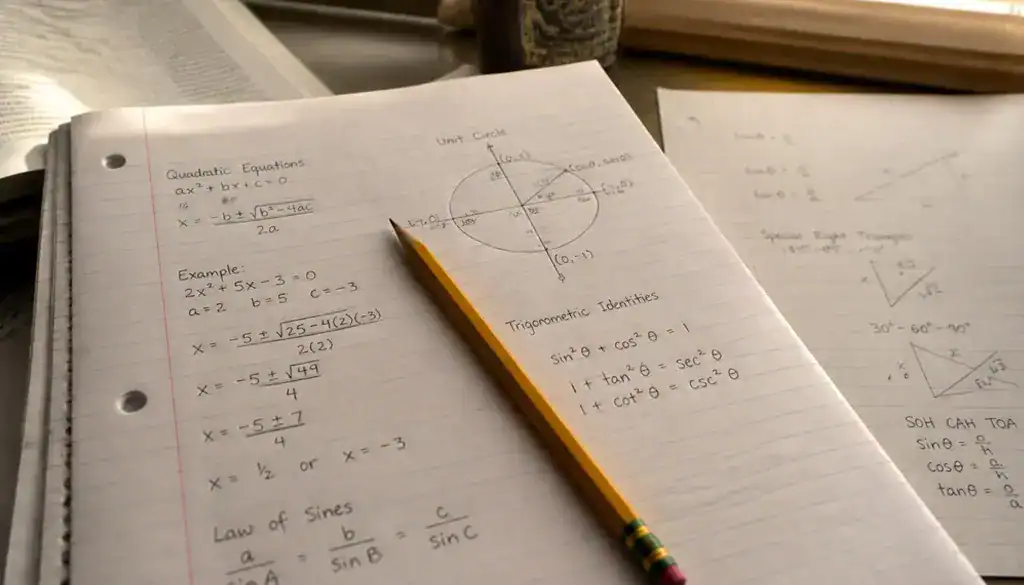 Quadratic Equations
ax² + bx + c = 0
x = -b ± √b² - 4ac / 2a
Example:
2x² + 5x - 3 = 0
a = 2 b = 5 c = -3
x = -5 ± √25 - 4(2)(-3) / 2(2)
x = -5 ± √49 / 4
x = -5 ± 7 / 4
x = ½ or x = -3
Law of Sines
a / sin A = b / sin B = c / sin C
Unit Circle
(0, -1)
Trigorometric Identities
sin² θ + cos² θ = 1
1 + tan² θ = sec² θ
1 + cot² θ = csc² θ
Special Right
30° - 60° - 90°
SOH CAH TOA
sinθ = o/h
cosθ = a/h
tanθ = o/a